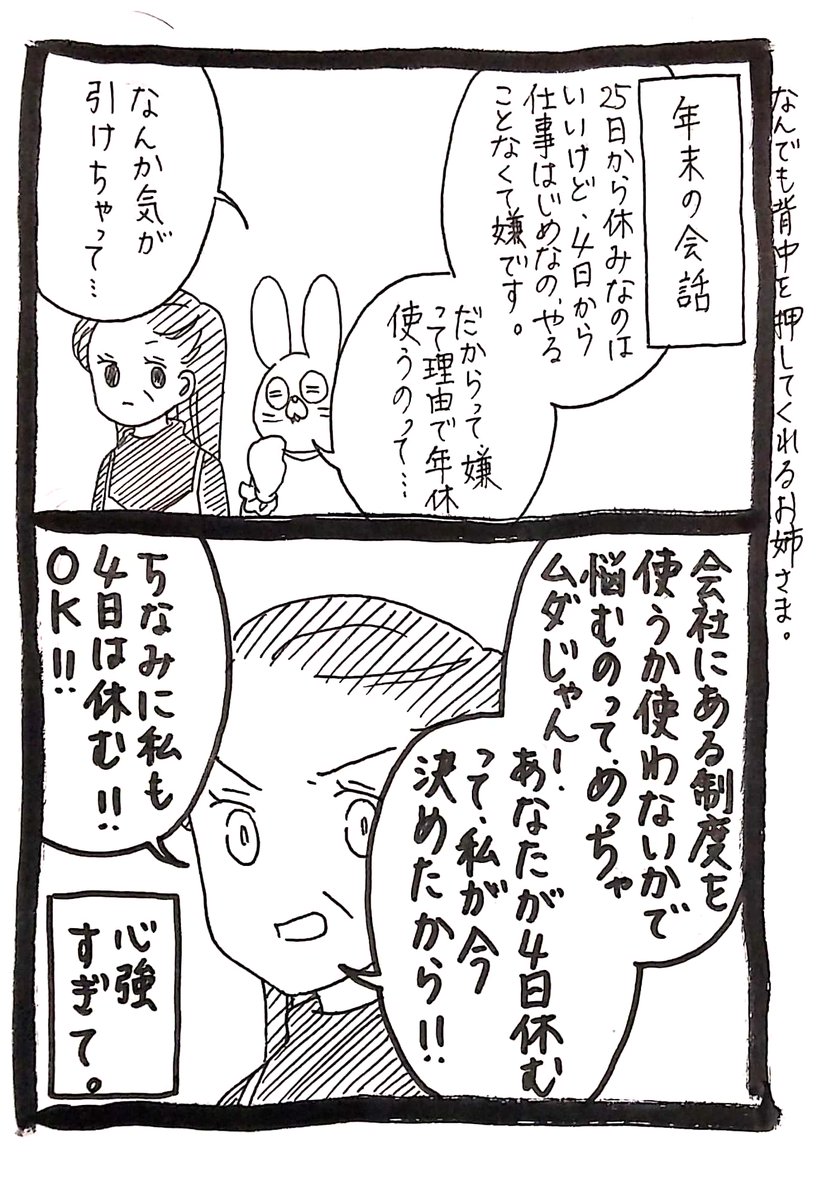 なんでも背中を押してくれるお姉さま。
年末の会話
25日から休みなのは
いいけど、4日から
仕事はじめなの、やる
ことなくて嫌です。
だからって、嫌
って理由で年休
使うのって…
なんか気が
引けちゃって…
会社にある制度を
使うか使わないかで
悩むのって、めっちゃ
ムダじゃん!
あなたが4日休む
って、私が今
決めたから!!
ちなみに私も
4日は休む!!
OK!!
心強
すぎて。